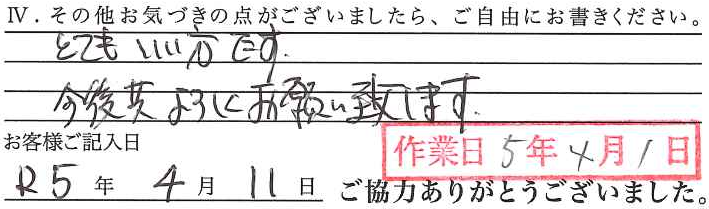 Ⅳ．その他お気づきの点がございましたら、ご自由にお書きください。
とてもいい方です.
今後共ようしくお願い致します.
お客様ご記入日
作業日 5年4月1日
R5年 4月 11日 ご協力ありがとうございました。